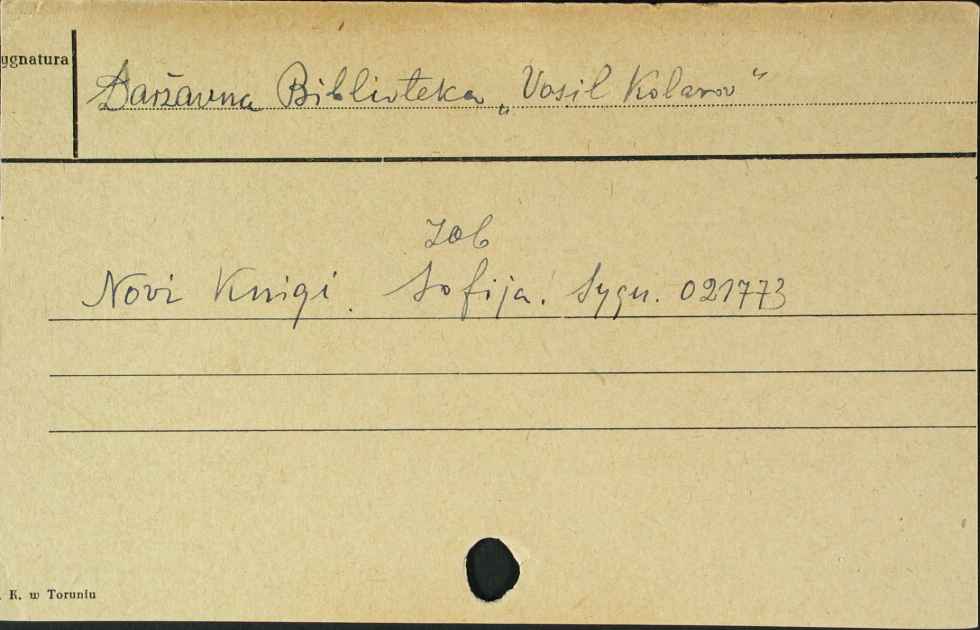 ygnatura
Daržavna Biblioteka „Vasil Kolarov"
Zob
Novi Knigi. Sofija. Sygn. 021773
. K. w Toruniu